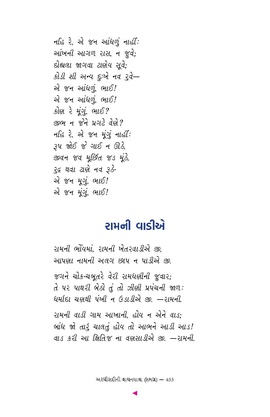 નહિ રે, એ જન આંધળું નાહીંઃ
આંખની આગળ રાસ, ન જુવે;
દોહ્યલા જાગવા ટાણેય સૂવે;
કોડી શી અન્ય દુઃખે નવ રૂવે—
એ જન આંધળું, ભાઈ!
એ જન આંધળું, ભાઈ!
કોણ રે મૂંગું, ભાઈ?
જીભ ન જેને પ્રગટે વેણે?
નહિ રે, એ જન મૂંગું નાહીંઃ
રૂપ જોઈ જે ગાઈ ન ઊઠે,
જીવન જવ મૂર્છિત જડ મૂંઠે,
રુદ્ર થવા ટાણે નવ રૂઠે-
એ જન મૂંગું, ભાઈ!
એ જન મૂંગું, ભાઈ!
રામની વાડીએ
રામની ભોંયમાં, રામની ખેતરવાડીએ જી;
આપણા નામની અલગ છાપ ન પાડીએ જી.
જગને ચોક-ચબૂતરે વેરી રામધણીની જુવાર;
તે પર પાથરી બેઠો તું તો ઝીણી પ્રપંચની જાળ:
ધર્માદા ચણથી પંખી ન ઉડાડીએ જી. —રામની.
રામની વાડી ગામ આખાની, હોય ન એને વાડ;
બાંધ જો તારું ચાલતું હોય તો આભને આડી આડ!
વાડ કરી આ ક્ષિતિજ ના વણસાડીએ જી. —રામની.